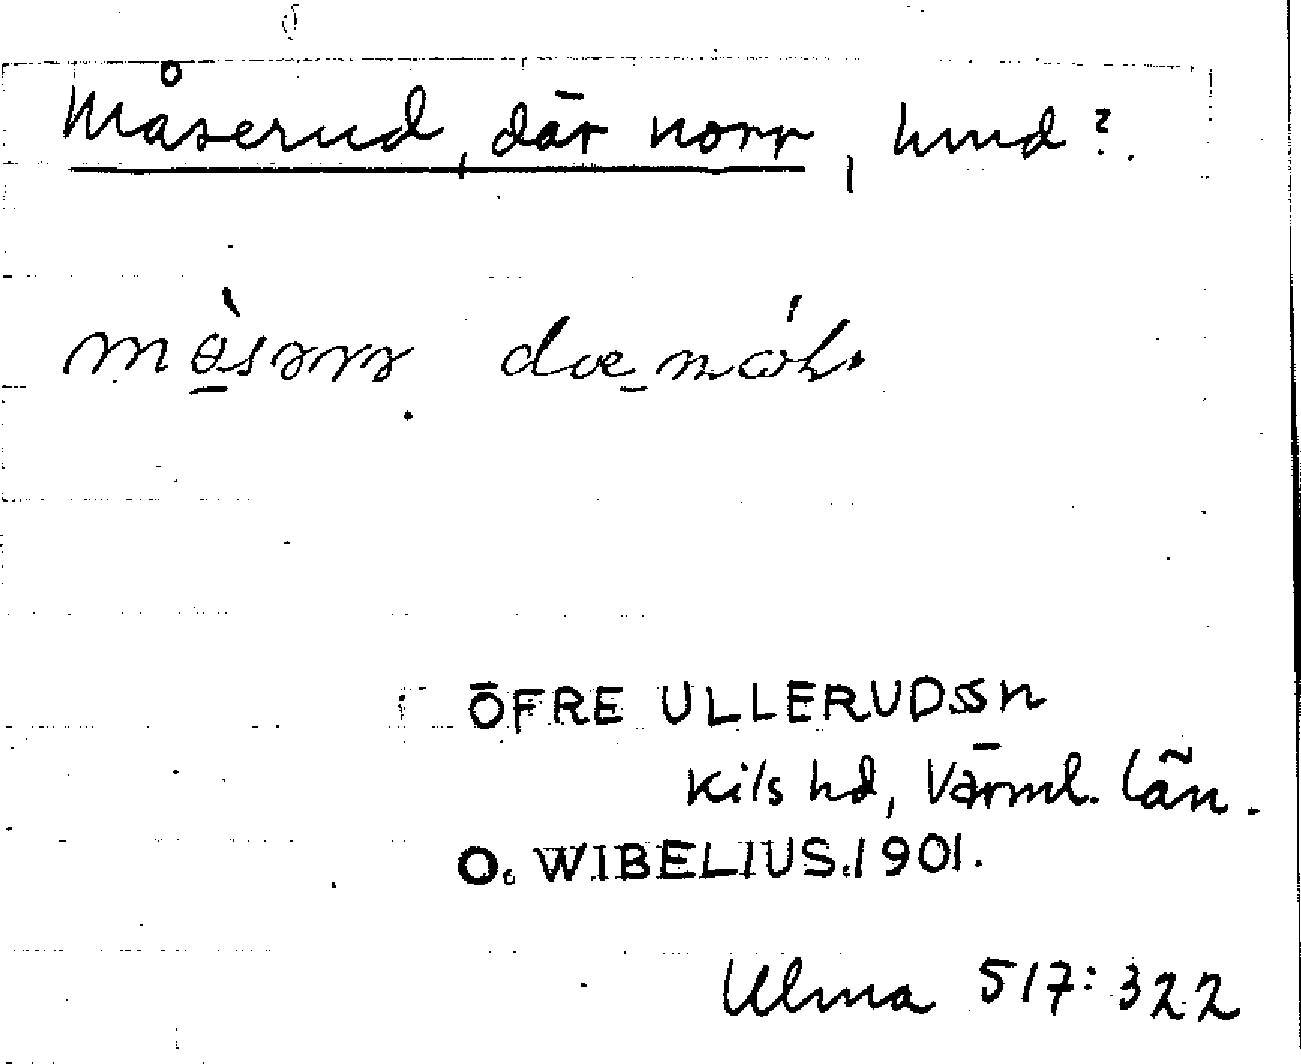 Måserud, där norr, hmd?
ÖFRE ULLERUDssn
Kils hd, Värml. län.
O. WIBELIUS.1901.
Ulma 517:322